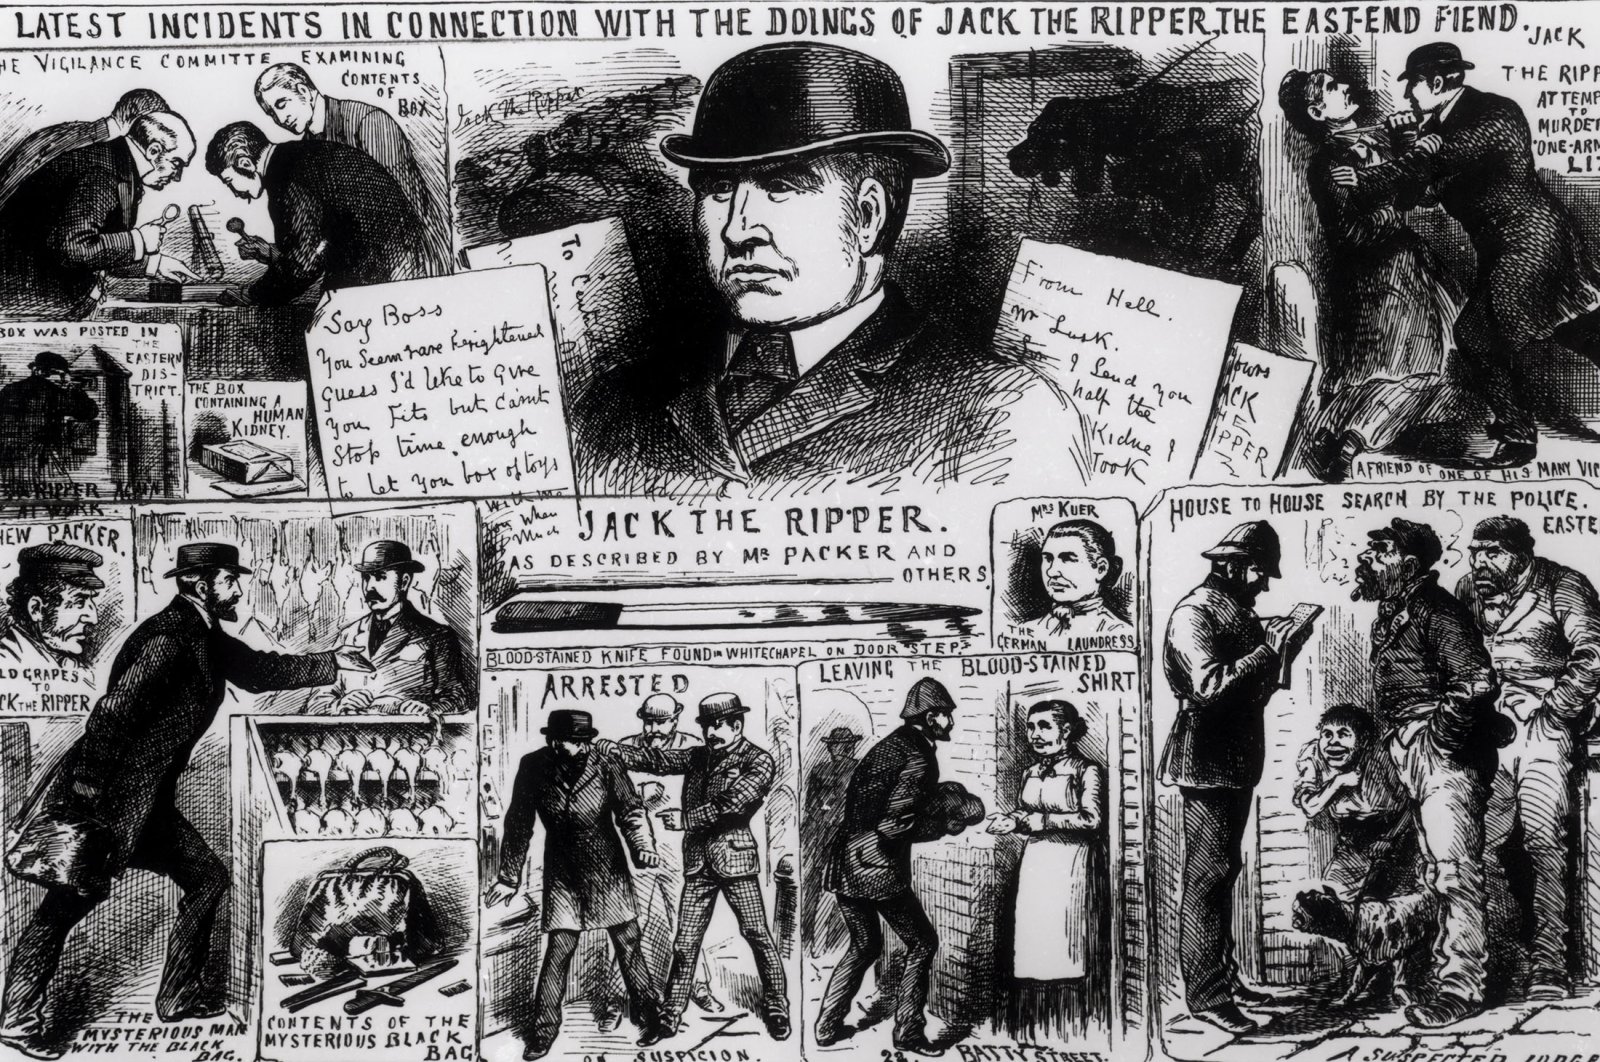 LATEST INCIDENTS IN CONNECTION WITH THE DOINGS OF JACK THE RIPPER, THE EAST-END FIEND.
HE VIGILANCE COMMITTE EXAMINING
CONTENTS
OF
BOX
Jack the Ripper
JACK
THE RIPP
ATTEMP
TO
MURDER
ONE-ARM
LI
BOX WAS POSTED IN
THE
EASTERN
DIS-
TRICT.
THE BOX
CONTAINING A
HUMAN
KIDNEY.
RIPPER AGAIN
AT WORK
Say Boss
You Seem rare frightened
Guess I'd like to give
You Fits but Can't
Stop time enough
to let you box of toys
To
From Hell.
Mr Lusk.
Sor I Send you
half the
Kidne I
Took
YOURS
ACK
HE
IPPER
A FRIEND OF ONE OF HIS MANY VIC
JACK THE RIPPER.
AS DESCRIBED BY MR PACKER AND
OTHERS
MRS KUER
THE
GERMAN LAUNDRESS
HEW PACKER.
LD GRAPES
TO
CK THE RIPPER
BLOOD-STAINED KNIFE FOUND IN WHITECHAPEL ON DOOR STEP
ARRESTED
ON SUSPICION.
LEAVING THE BLOOD-STAINED
SHIRT
22. BATTY STREET.
HOUSE TO HOUSE SEARCH BY THE POLICE.
EASTE
A SUSPECTED
THE
MYSTERIOUS MAN
WITH THE BLACK
BAG.
CONTENTS OF THE
MYSTERIOUS BLACK
BAG